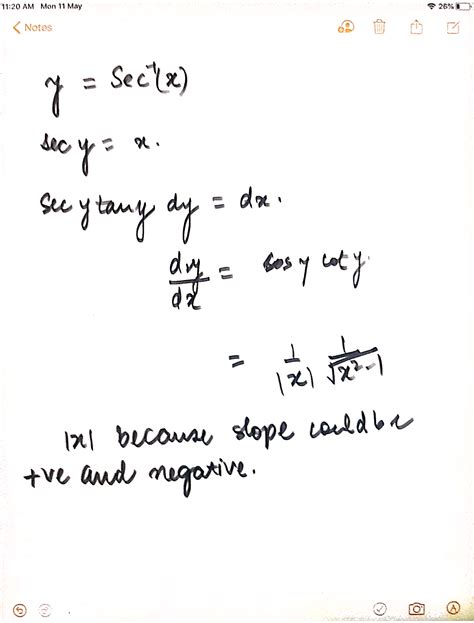 11:20 AM Mon 11 May 26%
Notes
y = Sec⁻¹(x)
sec y = x.
sec y tan y dy = dx.
dy/dx = cos y cot y.
= 1/|x| 1/√x²-1
|x| because slope could be
+ve and negative.